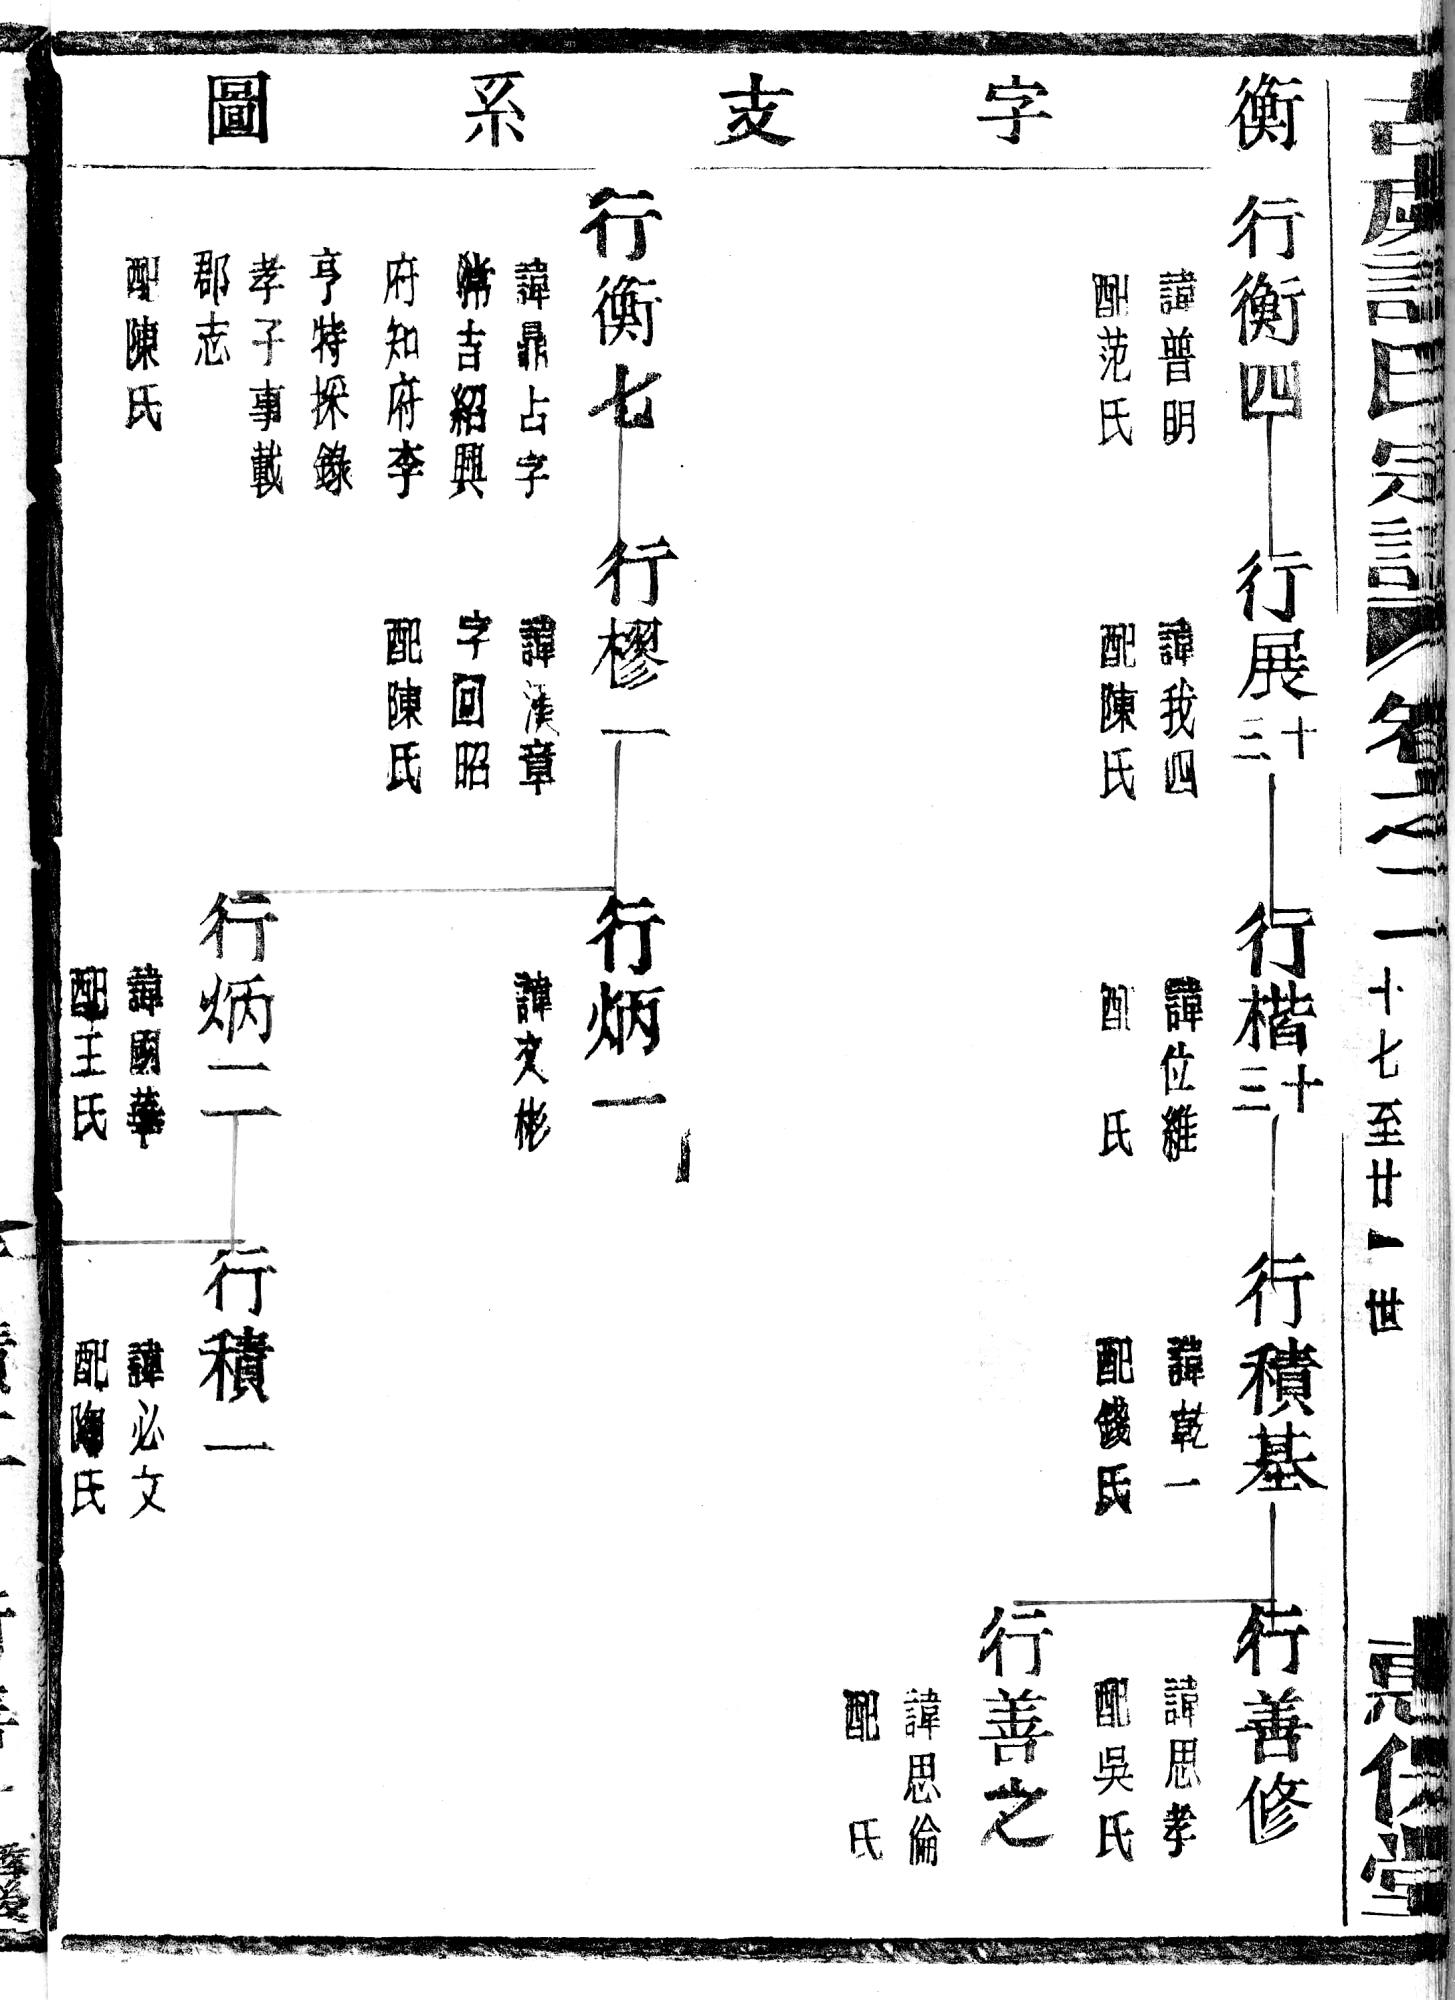 衡字支系圖
行衡四
諱普明
配范氏
行展十三
諱我四
配陳氏
行楷十三
諱位維
配 氏
行積基
諱乾一
配錢氏
行善修
諱思孝
配吳氏
行善之
諱思倫
配 氏
行衡七
諱鼎占字
霈吉紹興
府知府李
亨特採錄
孝子事載
郡志
配陳氏
行樛一
諱漢章
字回昭
配陳氏
行炳一
諱文彬
行炳二
諱國華
配王氏
行積一
諱必文
配陶氏
氏宗譜
卷之二
十七至廿一世
堂